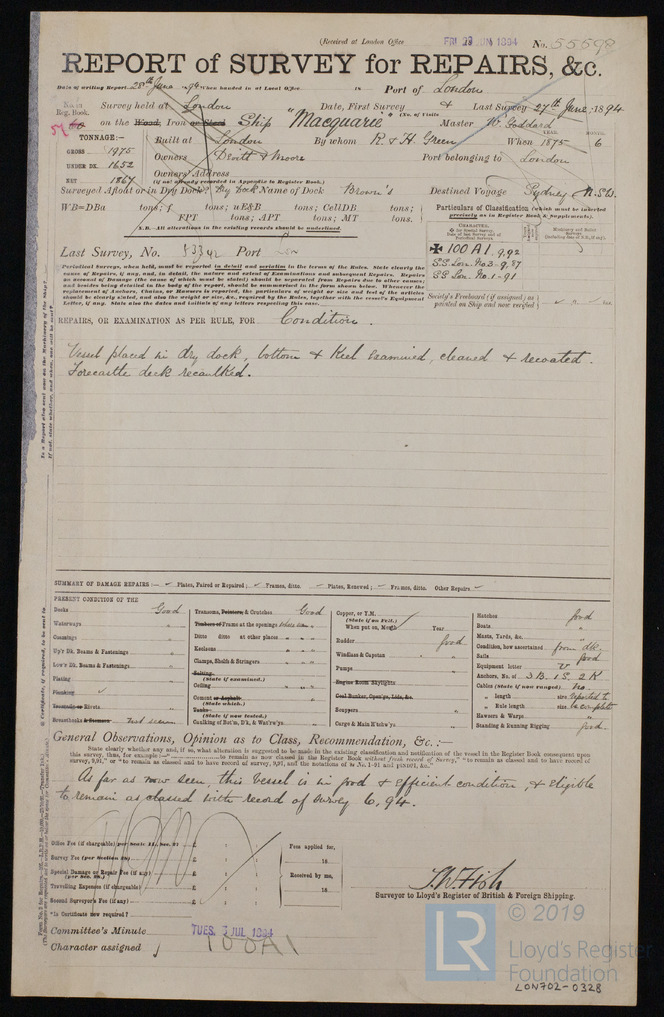 (Received at London Office FRI 29 JUN 1894 No. 55598
REPORT of SURVEY for REPAIRS, &c.
Date of writing Report 28th June 1894 When handed in at Local Office 18 Port of London
No. in Reg. Book. Survey held at London Date, First Survey & Last Survey 27th June, 1894
on the Wood, Iron or Steel Ship "Macquarie" (No. of Visits Master W. Goddard
TONNAGE:— Built at London By whom R & H. Green When 1875 6
GROSS 1975 Owners Devitt & Moore Port belonging to London
UNDER DK. 1652
NET 1867 Owners' Address
(if not already recorded in Appendix to Register Book.)
Surveyed Afloat or in Dry Dock? Dry Dock Name of Dock Brown's Destined Voyage Sydney N.S.W.
WB=DBa tons; f tons; uE&B tons; CellDB tons;
FPT tons; APT tons; MT tons.
N.B.—All alterations in the existing records should be underlined.
Particulars of Classification (which must be inserted precisely as in Register Book & Supplements).
100 A1. 9,92
S.S. Lon. No.3-9,87
S.S. Lon. No.1-91
Last Survey, No. Port Lon
Periodical Surveys, when held, must be reported in detail and seriatim in the terms of the Rules. State clearly the cause of Repairs, if any, and, in detail, the nature and extent of Examinations and subsequent Repairs. Repairs on account of Damage (the cause of which must be stated) should be separated from Repairs due to other causes;
Society's Freeboard (if assigned) as painted on Ship and now verified
REPAIRS, OR EXAMINATION AS PER RULE, FOR Condition.
Vessel placed in dry dock, bottom & Keel Examined, cleaned & recoated.
Forecastle deck recaulked.
SUMMARY OF DAMAGE REPAIRS:— Plates, Faired or Repaired; Frames, ditto. Plates, Renewed; Frames, ditto. Other Repairs
PRESENT CONDITION OF THE
Decks Good
Waterways "
Coamings "
Up'r Dk. Beams & Fastenings "
Low'r Dk. Beams & Fastenings "
Plating "
Planking
Rivets
Breasthooks Not seen
Transoms, Pointers & Crutches Good
Timbers of Frame at the openings where seen
Ditto ditto at other places
Keelsons
Clamps, Shelfs & Stringers
Salting
(State if examined.)
Ceiling
Cement or Asphalt
(State which.)
Tanks
(State if now tested.)
Caulking of Bot'm, D'k, & Wat'rw'ys
Copper, or Y.M.
(State if on Felt.)
When put on, Month Year
Rudder good
Windlass & Capstan "
Pumps "
Engine Room Skylights
Coal Bunker, Open'gs, Lids, &c.
Scuppers
Cargo & Main H'tchw'ys
Hatches good
Boats "
Masts, Yards, &c. "
Condition, how ascertained from dk.
Sails good
Equipment letter V
Anchors, No. of 3 B. 1 S. 2 K
Cables (State if now ranged) No.
" length size reported to
" Rule length size be complete
Hawsers & Warps "
Standing & Running Rigging good
General Observations, Opinion as to Class, Recommendation, &c.:—
State clearly whether any, and if, so, what alteration is suggested to be made in the existing classification and notification of the vessel in the Register Book consequent upon this survey, thus, for example:— to remain as now classed in the Register Book without fresh record of Survey," "to remain as classed and to have record of survey, 9,91," or "to remain as classed and to have record of survey, 9,91,
As far as now seen, this Vessel is in good & Efficient condition, & Eligible
to remain as classed with record of Survey 6,94.
Office Fee (if chargeable) per Scale II., Sec. 2) £ : : Fees applied for,
Survey Fee (per Section 28) £ : : 18
Special Damage or Repair Fee (if any) £ : : Received by me,
(per Sec. 28.)
Travelling Expenses (if chargeable) £ : : 18
Second Surveyor's Fee (if any) £ : :
*Is Certificate now required?
S.W. Fish
Surveyor to Lloyd's Register of British & Foreign Shipping.
Committee's Minute TUES. 3 JUL 1894
Character assigned 100A1
© 2019
LR Lloyd's Register
Foundation
LON702-0328